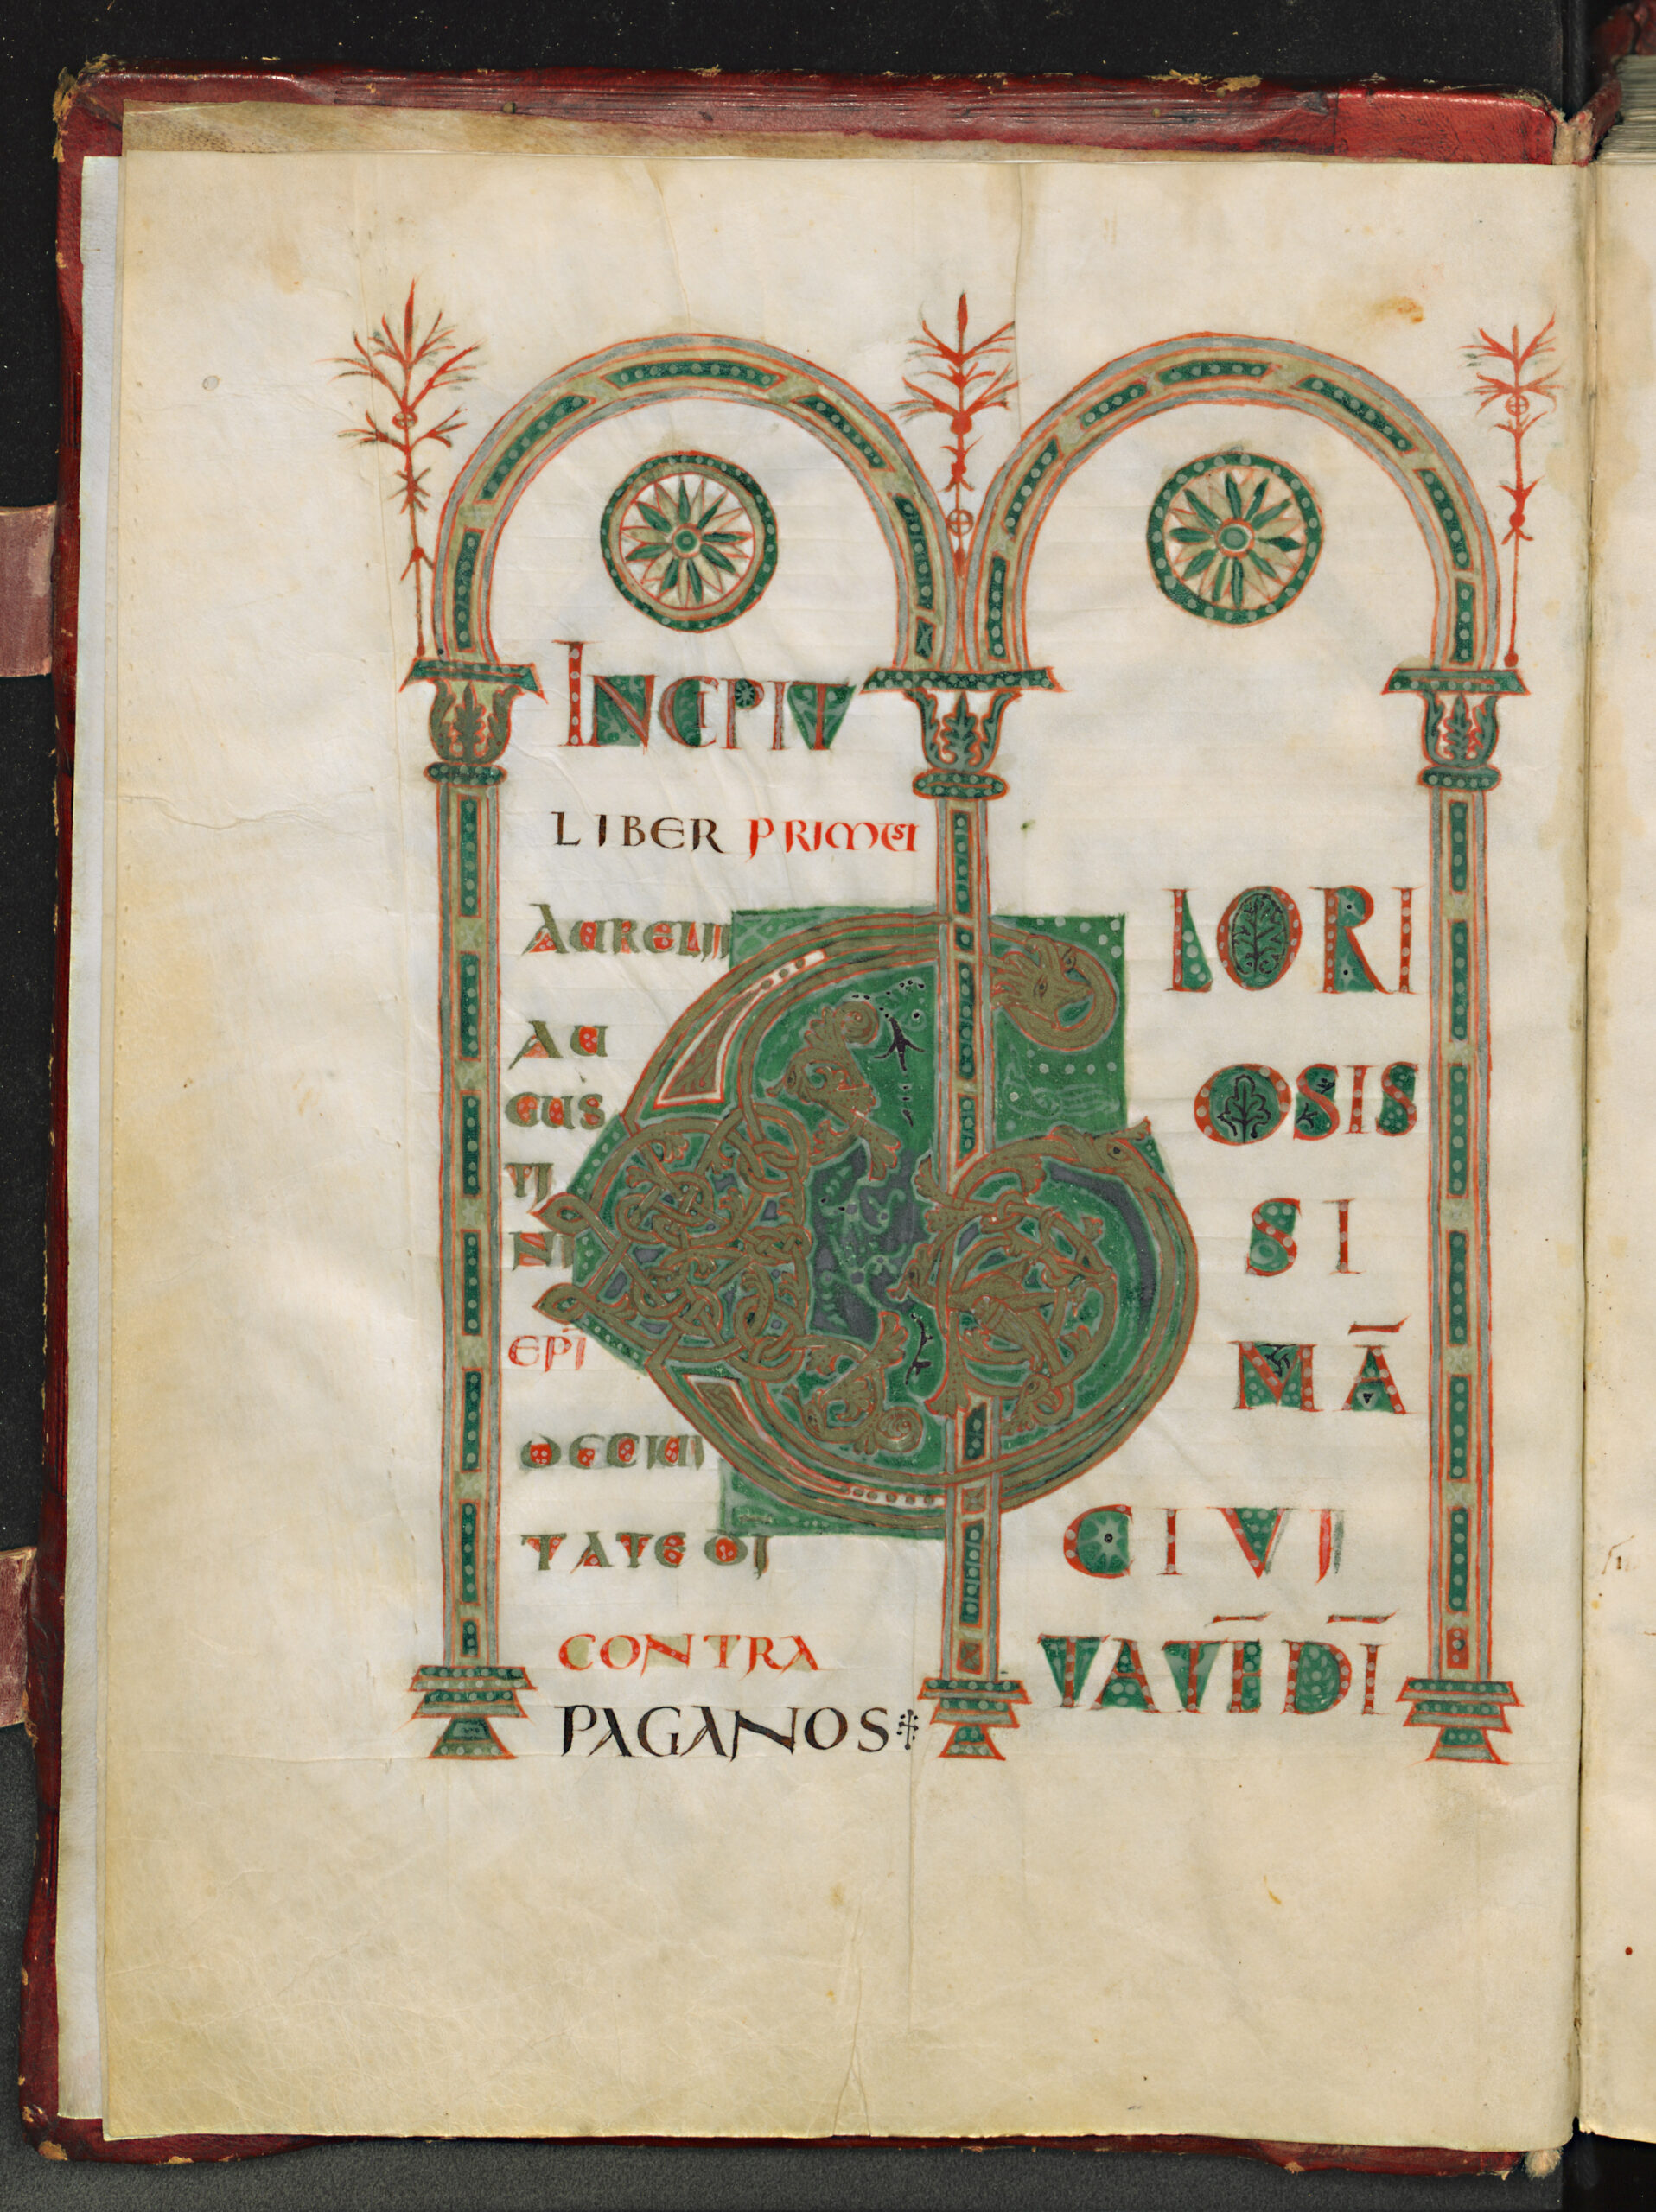 INCIPIT
LIBER PRIMUS
AURELII
AU
GUS
TI
NI
EPI
DE CIUI
TATE DI
CONTRA
PAGANOS
G
LORI
OSIS
SI
MĀ
CIVI
TATĒ DĪ